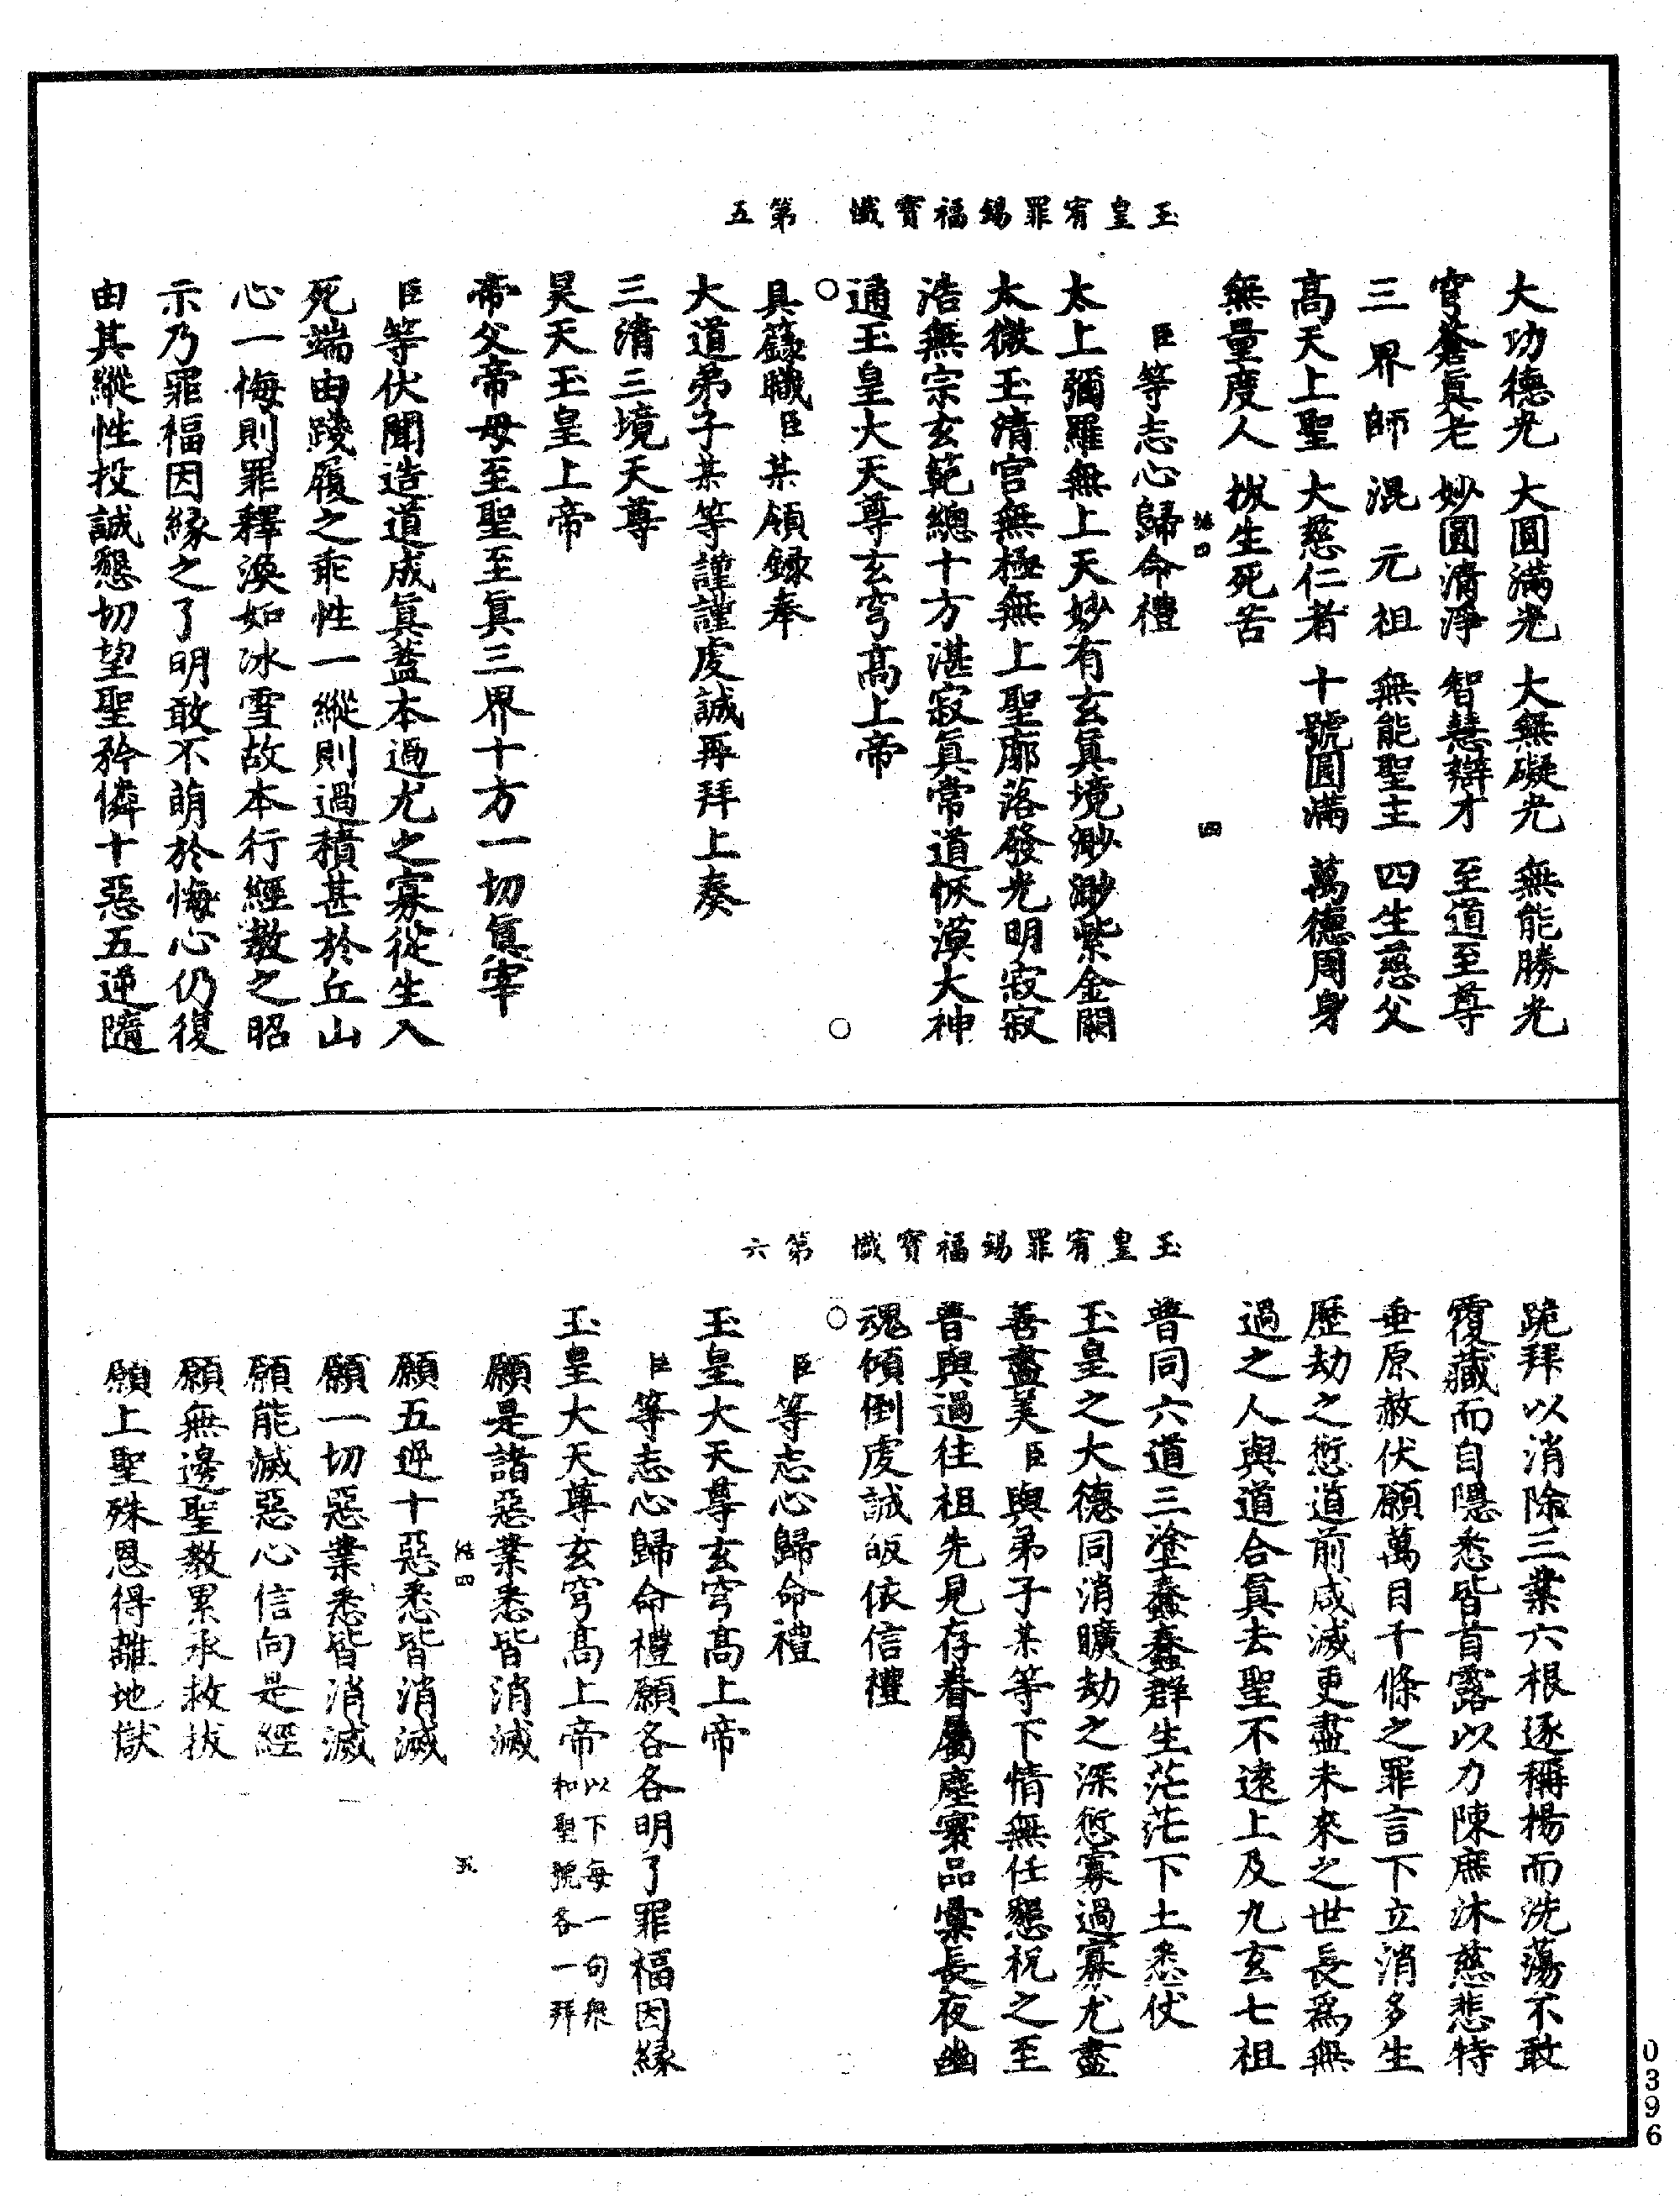 玉皇宥罪錫福寶懺　第五
大功德光　大圓滿光　大無礙光　無能勝光
穹蒼眞老　妙圓清淨　智慧辯才　至道至尊
三界師　混元祖　無能聖主　四生慈父
高天上聖　大慈仁者　十號圓滿　萬德周身
無量度人　拔生死苦
四
臣等志心歸命禮
太上彌羅無上天妙有玄眞境渺渺紫金闕
太微玉清宫無極無上聖廓落發光明寂寂
浩無宗玄範總十方湛寂眞常道恢漠大神
通玉皇大天尊玄穹高上帝
○　○
具籙職臣某領錄奉
大道弟子某等謹謹虔誠再拜上奏
三清三境天尊
昊天玉皇上帝
帝父帝母至聖至眞三界十方一切眞宰
臣等伏聞造道成眞蓋本過尤之寡從生入
死端由踐履之乖性一縱則過積甚於丘山
心一悔則罪釋渙如冰雪故本行經教之昭
示乃罪福因緣之了明敢不萌於悔心仍復
由其縱性投誠懇切望聖矜憐十惡五逆隨
玉皇宥罪錫福寶懺　第六
跪拜以消除三業六根逐稱揚而洗蕩不敢
覆藏而自隱悉皆首露以力陳庶沐慈悲特
垂原赦伏願萬目千條之罪言下立消多生
歷劫之愆道前咸滅更盡未來之世長爲無
過之人與道合眞去聖不遠上及九玄七祖
普同六道三塗蠢蠢群生茫茫下土悉仗
玉皇之大德同消曠劫之深愆寡過寡尤盡
善盡美臣與弟子某等下情無任懇祝之至
普與過往祖先見存眷屬塵寰品彙長夜幽
魂傾倒虔誠皈依信禮
○
臣等志心歸命禮
玉皇大天尊玄穹高上帝
臣等志心歸命禮願各各明了罪福因緣
玉皇大天尊玄穹高上帝以下每一句衆和聖號各一拜
願是諸惡業悉皆消滅
四
五
願五逆十惡悉皆消滅
願一切惡業悉皆消滅
願能滅惡心信向是經
願無邊聖教累承救拔
願上聖殊恩得離地獄
0396